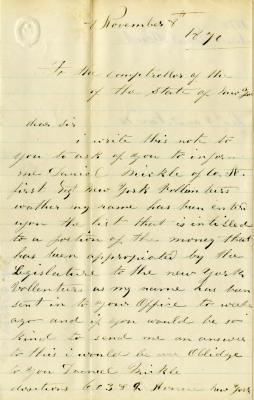 November 8th
1870
To the Comptroller of the
of the State of New York
dear Sir
i write this note to
you to ask of you to inform
me Daniel Brickle of Co. K.
first Regt New York Vollenters
wather my name has ben enterd
upon the list that is intilled
to a portion of the money that
has been appropriated by the
Legislature to the new York
Vollenters as my name has ben
sent in to your Office to weaks
ago and if you would be so
kind to send me an answer
to this i would be Oblidge
to you Daniel Brickle
603 & 9 Avenue New York